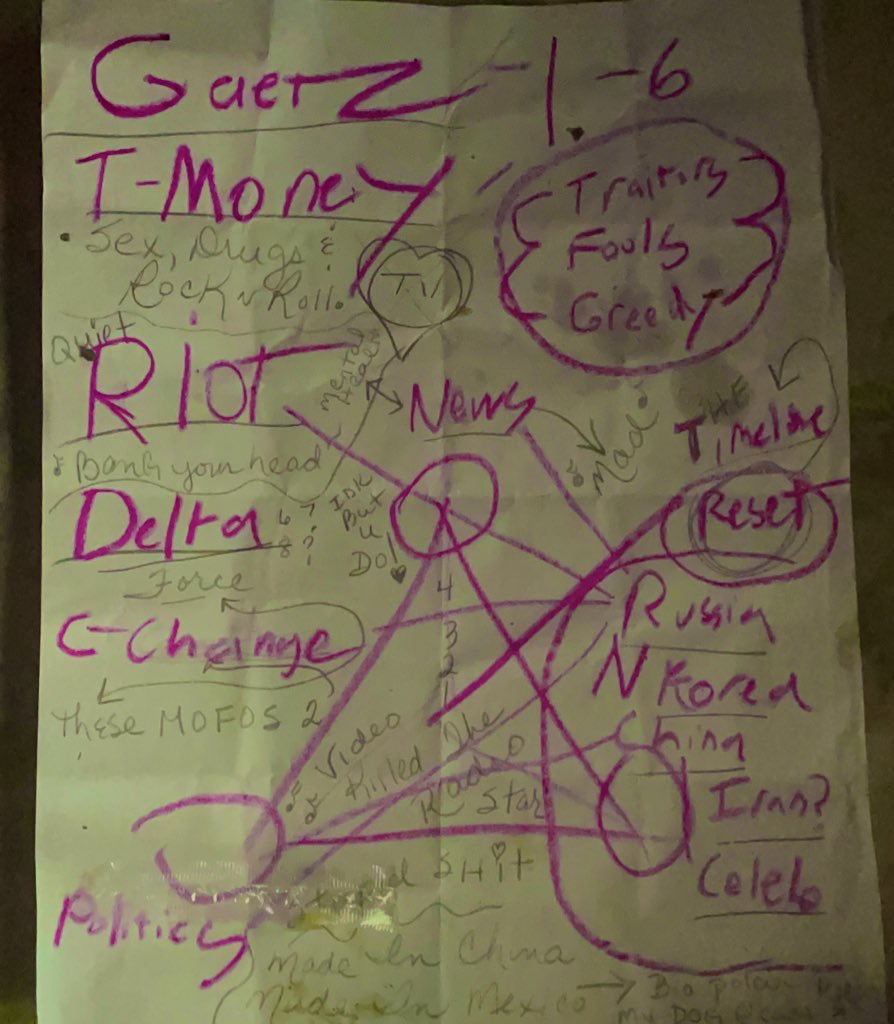 Gaetz - 1 - 6
T-Money
Traitors
Fools
Greedy
Sex, Drugs &
Rock n Roll.
T.V
Quiet
RIOT
Mental
Health
News
Mad
THE
Timeline
Bang your head
Delta 6 7
8 ?
IDK
But
u
Do!
Reset
Force
4
3
2
1
C-Change
Russia
N Korea
China
Iran?
Celeb
These MOFOS 2
Video
Killed The
Radio
Star
SHit
Politics
Made In China
Made In Mexico →
My DOG